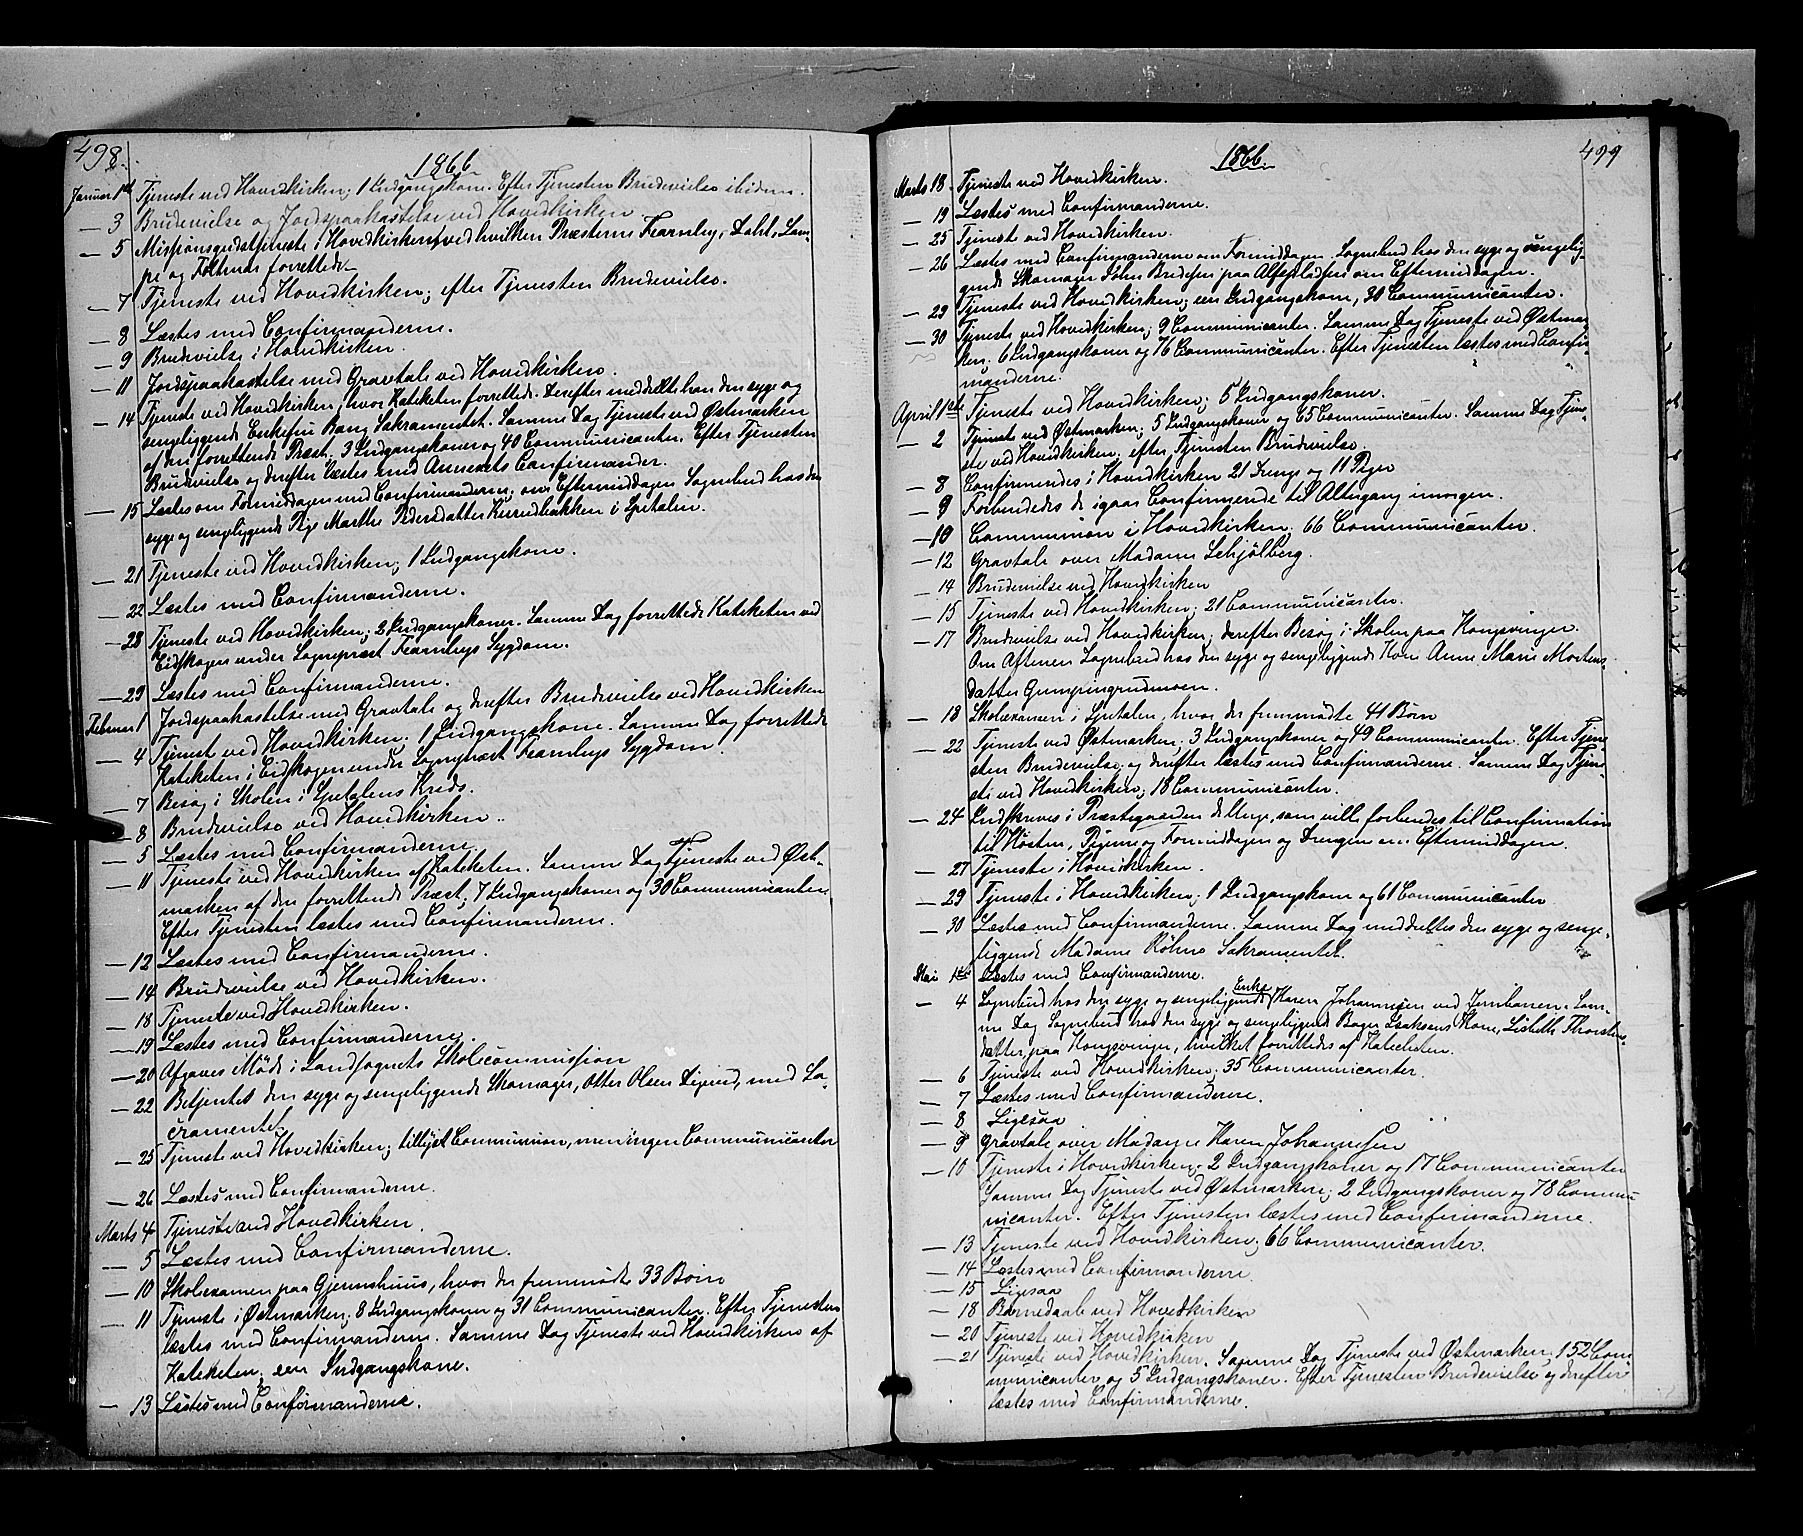 498.
1866
Januar 1ste Tjeneste ved Hovedkirken; 1 Indgangskone. Efter Tjenesten Brudevielse ibidem.
— 3 Brudevielse og Jordspaakastelse ved Hovedkirken.
— 5 Missionsgudstjeneste i Hovedkirken, ved hvilken Præsterne Fearnley, Dahl, Lam-
pe og forrettede.
— 7 Tjeneste ved Hovedkirken; efter Tjenesten Brudevielse.
— 8 Læstes med Confirmanderne.
— 9 Brudevielse i Hovedkirken.
— 11 Jordspaakastelse med Gravtale ved Hovedkirken.
— 14 Tjeneste ved Hovedkirken, hvor Kateketen forrettede. Derefter meddeelte han den syge og
sengeliggende Enkefru Bang Sakramentet. Samme Dag Tjeneste ved Østmarken
af den forrettende Præst. 3 Indgangskoner og 40 Communicanter. Efter Tjenesten
Brudevielse og derefter læstes med Annexets Confirmander.
— 15 Læstes om Formiddagen med Confirmanderne; om Eftermiddagen Sognebud hos den
syge og sengeliggende Pige Marthe Pedersdatter i Spetalen.
— 21 Tjeneste ved Hovedkirken; 1 Indgangskone.
— 22 Læstes med Confirmanderne.
— 28 Tjeneste ved Hovedkirken; 2 Indgangskoner. Samme Dag forrettede Kateketen ved
Eidskogen under Sognepræst Fearnleys Sygdom.
— 29 Læstes med Confirmanderne.
Februar 1 Jordspaakastelse med Gravtale og derefter Brudevielse ved Hovedkirken
— 4 Tjeneste ved Hovedkirken. 1 Indgangskone. Samme Dag forrettede
Kateketen i Eidskogen under Sognepræst Fearnleys Sygdom.
— 7 Besøg i Skolen i Spetalens Kreds.
— 8 Brudevielse ved Hovedkirken.
— 5 Læstes med Confirmanderne
— 11 Tjeneste ved Hovedkirken af Kateketen. Samme Dag Tjeneste ved Øst-
marken af den forrettende Præst; 7 Indgangskoner og 30 Communicanter.
Efter Tjenesten læstes med Confirmanderne.
— 12 Læstes med Confirmanderne.
— 14 Brudevielse ved Hovedkirken.
— 18 Tjeneste ved Hovedkirken.
— 19 Læstes med Confirmanderne.
— 20 Afgaves Møde i Landsognets Skolecommission
— 22 Betjentes den syge og sengeliggende Skomager, Otter Olsen Digerud, med Sa-
cramentet.
— 25 Tjeneste ved Hovedkirken; tillyst Communion, men ingen Communicanter
— 26 Læstes med Confirmanderne.
Marts 4 Tjeneste ved Hovedkirken.
— 5 Læstes med Confirmanderne.
— 10 Skoleexamen paa Gjemshuus, hvor der fremmødte 33 Børn
— 11 Tjeneste i Østmarken; 8 Indgangskoner og 31 Communicanter. Efter Tjenesten
læstes med Confirmanderne. Samme Dag Tjeneste ved Hovedkirken af
Kateketen; een Indgangskone.
— 13 Læstes med Confirmanderne.
499
1866.
Marts 18. Tjeneste ved Hovedkirken.
— 19 Læstes med Confirmanderne.
— 25 Tjeneste ved Hovedkirken.
— 26 Læstes med Confirmanderne om Formiddagen. Sognebud hos den syge og sengelig-
gende Skomager Johan Bredesen paa om Eftermiddagen.
— 29 Tjeneste ved Hovedkirken; een Indgangskone, 30 Communicanter.
— 30 Tjeneste ved Hovedkirken; 9 Communicanter. Samme Dag Tjeneste ved Østmar-
ken. 6 Indgangskoner og 76 Communicanter. Efter Tjenesten læstes med Confir-
manderne.
April 1ste Tjeneste ved Hovedkirken; 5 Indgangskoner.
— 2 Tjeneste ved Østmarken; 5 Indgangskoner og 65 Communicanter. Samme Dag Tjene-
ste ved Hovedkirken; efter Tjenesten Brudevielse.
— 8 Confirmeredes i Hovedkirken 21 Drenge og 11 Piger
— 9 Forberededes de igaar Confirmerede til Altergang imorgen.
— 10 Communion i Hovedkirken; 66 Communicanter.
— 12 Gravtale over Madame Schjølberg.
— 14 Brudevielse ved Hovedkirken
— 15 Tjeneste ved Hovedkirken; 21 Communicanter.
— 17 Brudevielse ved Hovedkirken; derefter Besøg i Skolen paa Kongsvinger.
Om Aftenen Sognebud hos den syge og sengeliggende Kone Anne Marie Mortens-
datter Gumpingrudmoen.
— 18 Skoleexamen i Spetalen, hvor der fremmødte 41 Børn
— 22 Tjeneste ved Østmarken; 3 Indgangskoner og 49 Communicanter. Efter Tjene-
sten Brudevielse, og derefter læstes med Confirmanderne. Samme Dag Tjene-
ste ved Hovedkirken; 18 Communicanter.
— 24 Indskreves i Præstegaarden de Unge, som ville forberedes til Confirmation
til Høsten, Pigerne om Formiddagen og Drengene om Eftermiddagen.
— 27 Tjeneste i Hovedkirken.
— 29 Tjeneste i Hovedkirken; 1 Indgangskone og 61 Communicanter
— 30 Læstes med Confirmanderne. Samme Dag meddeltes den syge og senge-
liggende Madame Sakramentet.
Mai 1ste Læstes med Confirmanderne.
— 4 Sognebud hos den syge og sengeliggende Enke Karen Johannesen ved Jernbanen. Sam-
me Dag Sognebud hos den syge og sengeliggende Bager Isaksens Kone, Lisbeth Thorsten-
datter, paa Kongsvinger, hvilket forrettedes af Katecheten.
— 6 Tjeneste ved Hovedkirken; 35 Communicanter.
— 7 Læstes med Confirmanderne.
— 8 Ligesaa
— 9 Gravtale over Madame Karen Johannesen
— 10 Tjeneste i Hovedkirken. 2 Indgangskoner og 17 Communicanter
Samme Dag Tjeneste ved Østmarken; 2 Indgangskoner og 78 Commu-
nicanter. Efter Tjenesten læstes med Confirmanderne.
— 13 Tjeneste ved Hovedkirken; 66 Communicanter.
— 14 Læstes med Confirmanderne.
— 15 Ligesaa
— 18 Barnedaab ved Hovedkirken
— 20 Tjeneste ved Hovedkirken
— 21 Tjeneste ved Hovedkirken. Samme Dag Tjeneste ved Østmarken. 152 Com-
municanter og 5 Indgangskoner. Efter Tjenesten Brudevielse og derefter
læstes med Confirmanderne.